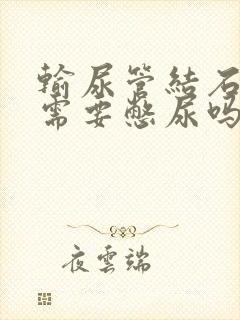 输尿管结石
需要憋尿吗
夜雲端